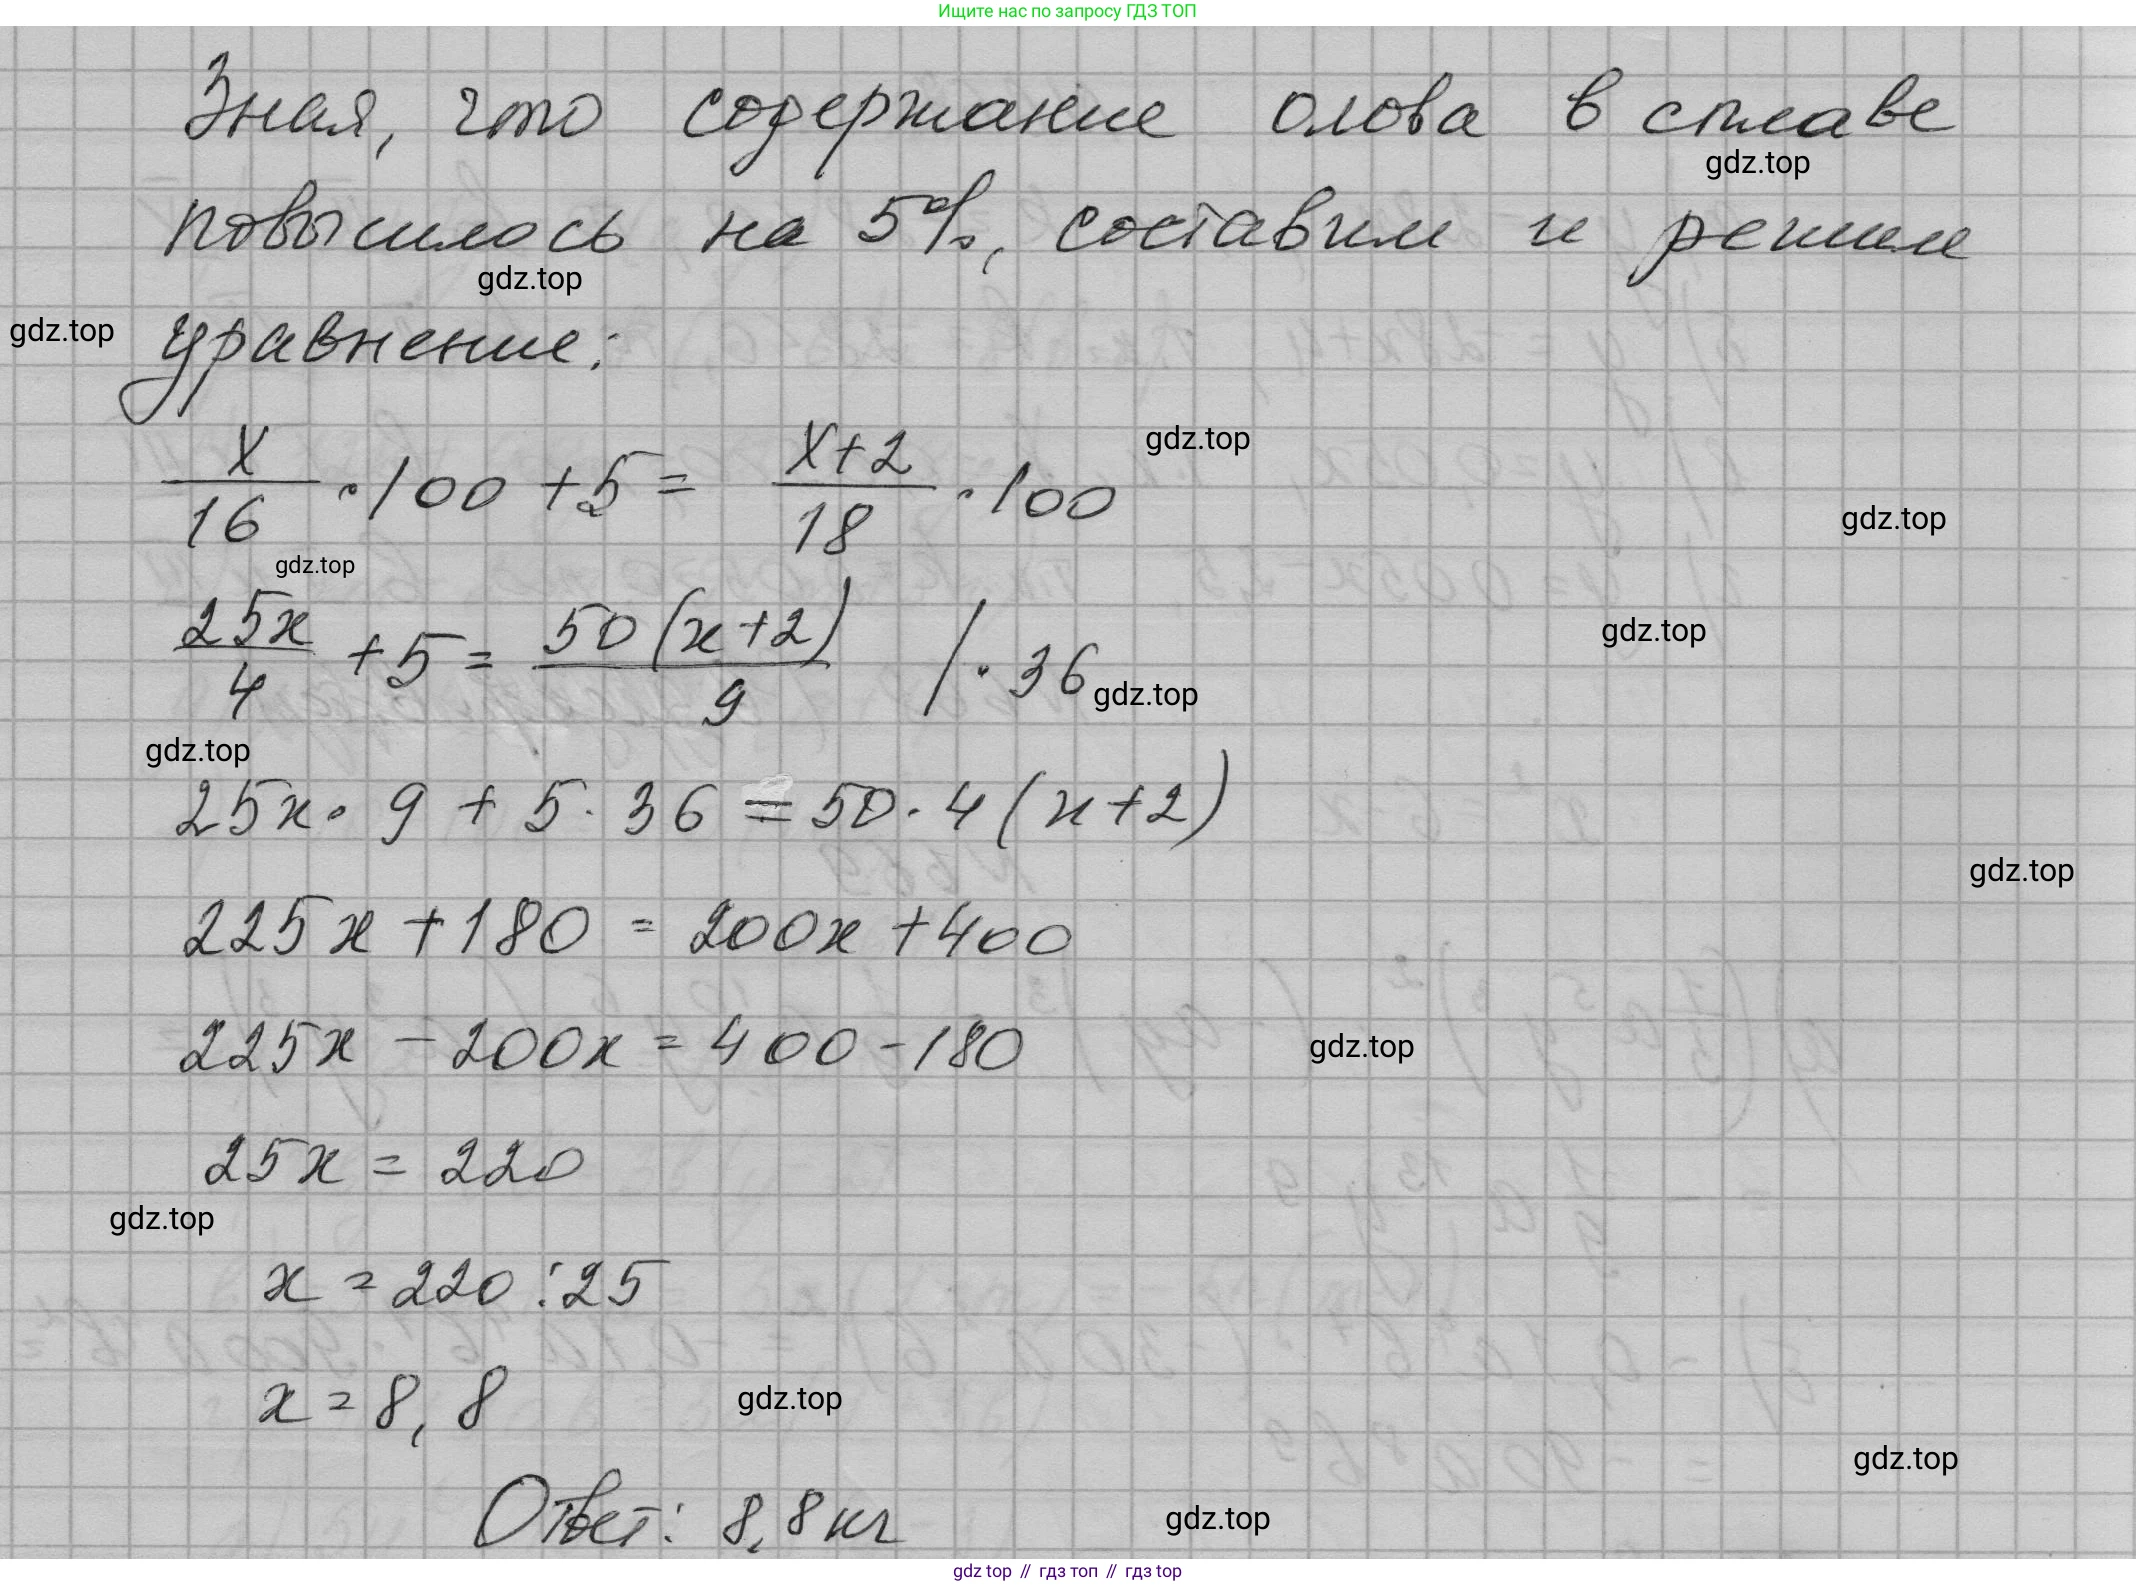 Ищите нас по запросу ГДЗ ТОП
Зная, что содержание олова в сплаве
gdz.top
повысилось на 5%, составим и решим
gdz.top
gdz.top
уравнение:
gdz.top
x/16 · 100 + 5 = x+2/18 · 100
gdz.top
gdz.top
25x/4 + 5 = 50(x+2)/9 / · 36
gdz.top
gdz.top
gdz.top
25x · 9 + 5 · 36 = 50 · 4 (x+2)
gdz.top
225x + 180 = 200x + 400
225x - 200x = 400 - 180
gdz.top
25x = 220
gdz.top
x = 220 : 25
x = 8,8
gdz.top
gdz.top
Ответ: 8,8 кг
gdz.top
gdz top // гдз топ // гдз top